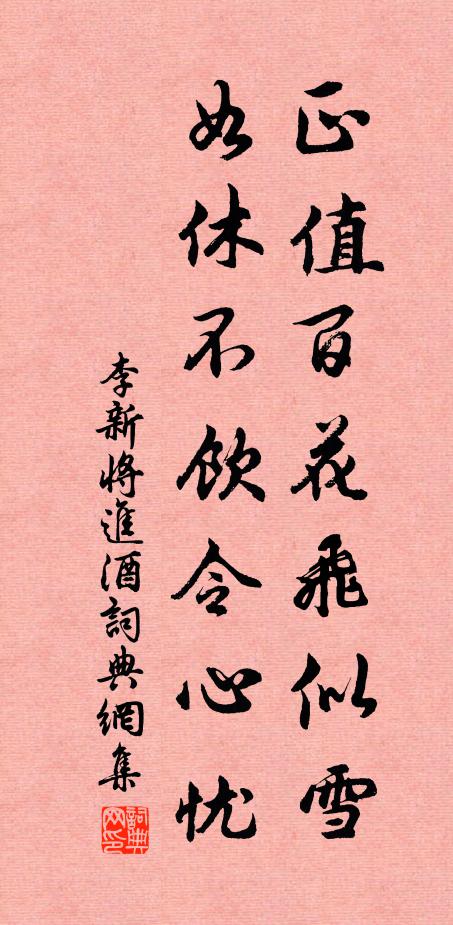 正值百花飛似雪
如休不飲令心忧
李新將進酒詞典網集
詞典
网印